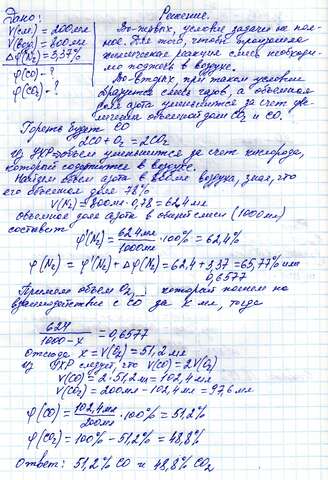 Дано:
V(см) = 200 мл
V(возд) = 800 мл
Δφ(N₂) = 3,37%
φ(CO) - ?
φ(CO₂) - ?
Решение.
Во-первых, условие задачи не пол-
ное. Для того, чтобы произошла
химическая реакция смесь необходи-
мо поджечь в воздухе.
Во-вторых, при таком условии
образуется смесь газов, а объемная
доля азота уменьшится за счет уве-
личения объемной доли CO₂ и CO.
Гореть будет CO
2CO + O₂ = 2CO₂
Из УХР объем уменьшится за счет кислорода,
который содержится в воздухе.
Найдем объем азота в 800 мл воздуха, зная, что
его объемная доля 78%
V(N₂) = 800мл · 0,78 = 624 мл
Объемная доля азота в общей смеси (1000мл)
составит
φ'(N₂) = 624мл / 1000мл · 100% = 62,4%
φ(N₂) = φ'(N₂) + Δφ(N₂) = 62,4 + 3,37 = 65,77% или
0,6577
Примем объем O₂, который пошел на
взаимодействие с CO за x мл, тогда
624 / 1000-x = 0,6577
Отсюда x = V(O₂) = 51,2 мл
Из УХР следует, что V(CO) = 2V(O₂)
V(CO) = 2 · 51,2мл = 102,4 мл
V(CO₂) = 200мл - 102,4мл = 97,6мл
φ(CO) = 102,4мл / 200мл · 100% = 51,2%
φ(CO₂) = 100% - 51,2% = 48,8%
Ответ: 51,2% CO и 48,8% CO₂